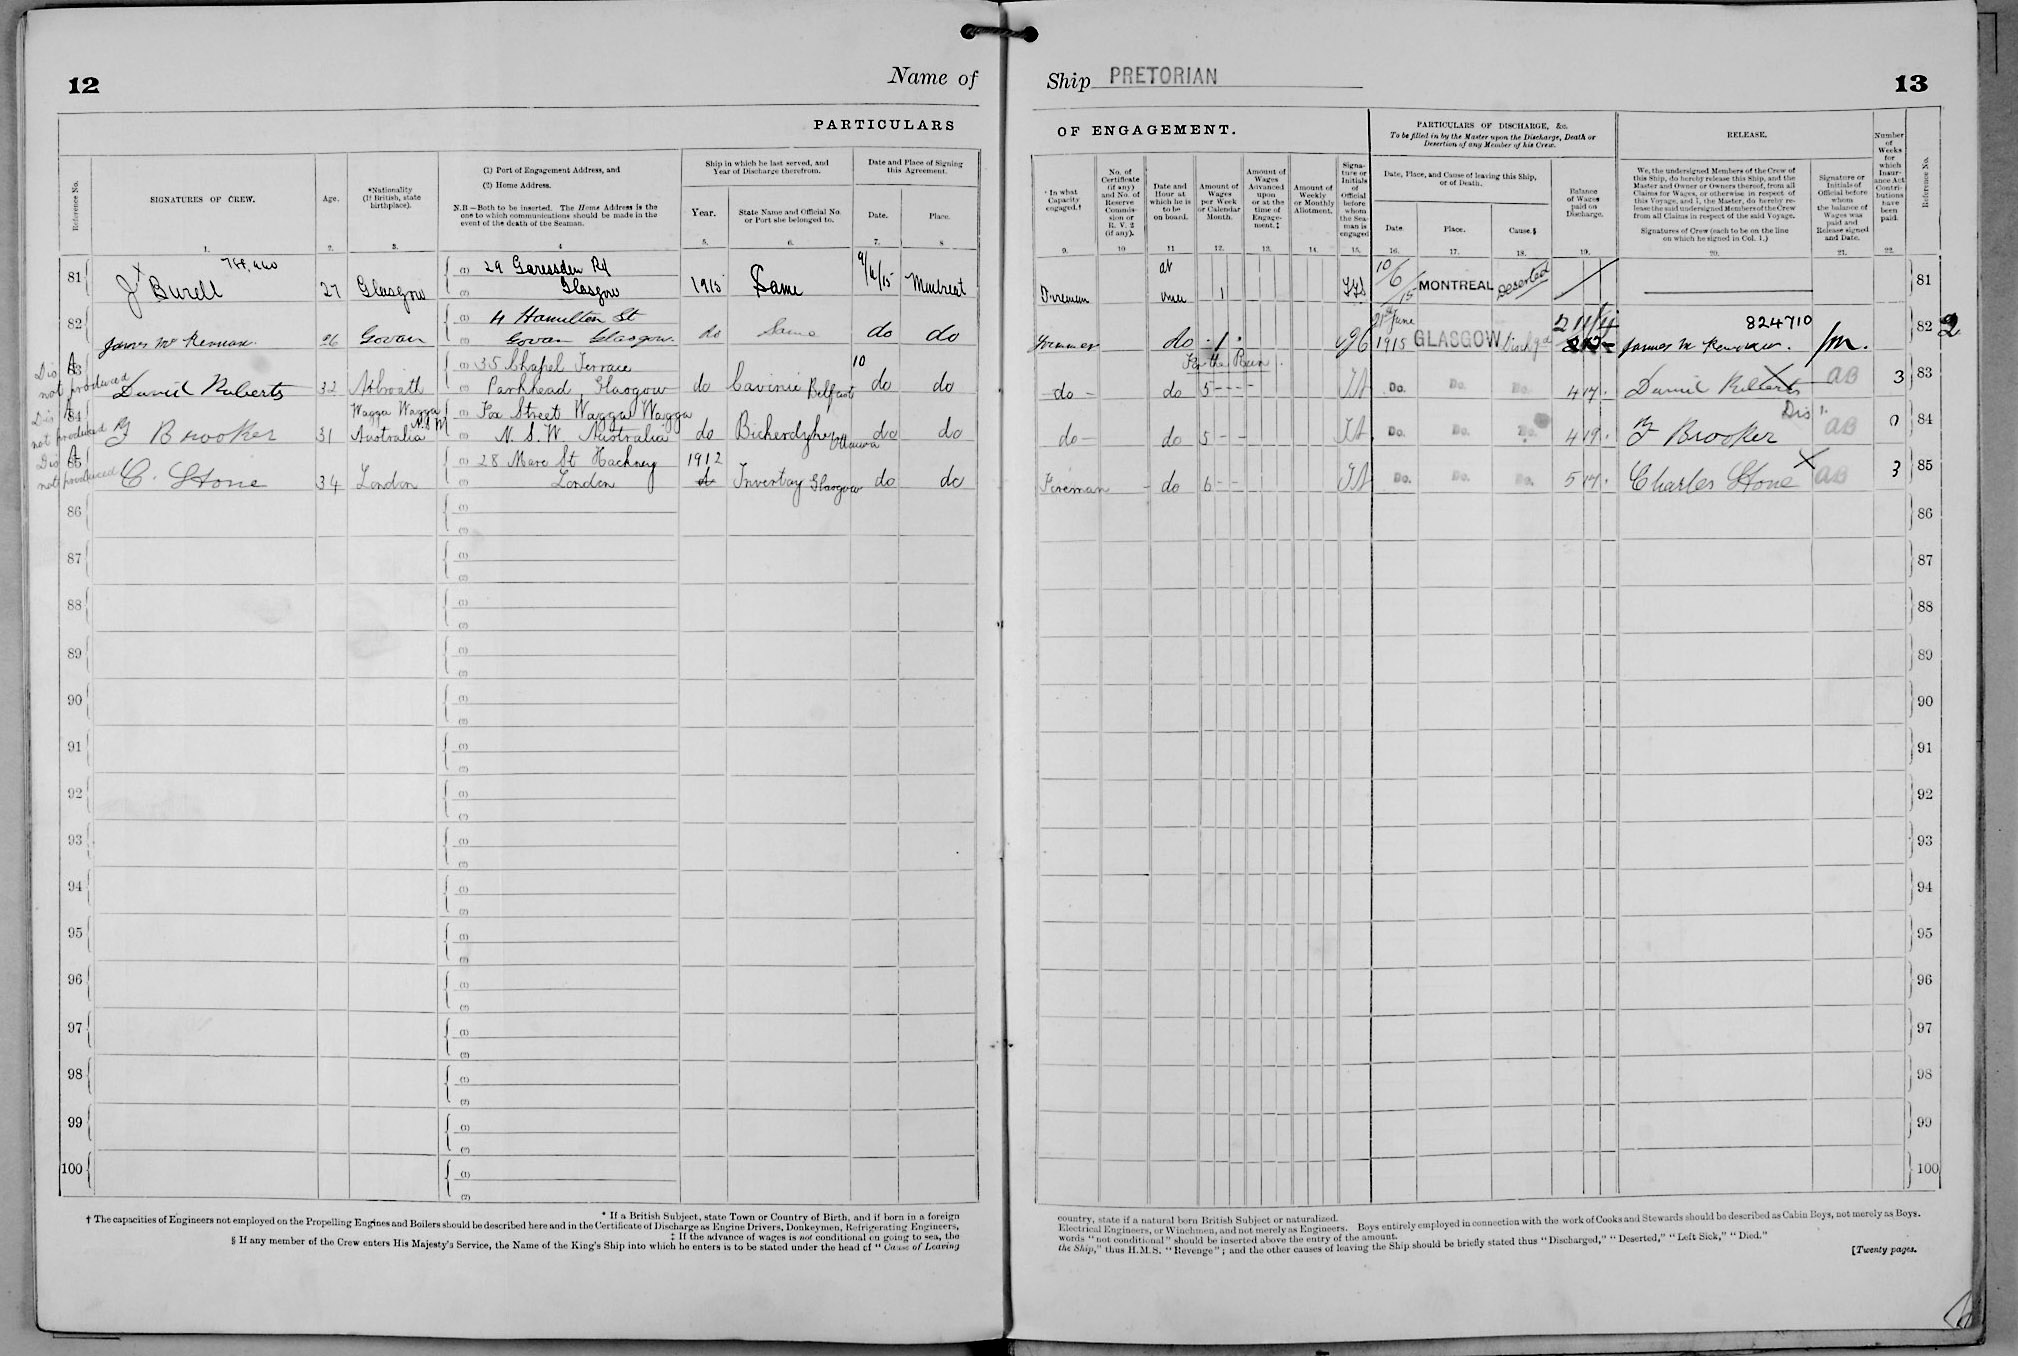 12
Name of
PARTICULARS
Reference No.
SIGNATURES OF CREW.
Age.
*Nationality
(If British, state
birthplace).
(1) Port of Engagement Address, and
(2) Home Address.
N.B—Both to be inserted. The Home Address is the
one to which communications should be made in the
event of the death of the Seaman.
Ship in which he last served, and
Year of Discharge therefrom.
Year.
State Name and Official No.
or Port she belonged to.
Date and Place of Signing
this Agreement.
Date.
Place.
1. 2. 3. 4 5. 6. 7. 8
81 J Burell 27 Glasgow (1) 29 Rd
(2) Glasgow 1915 Same 9/6/15 Montreal
82 James Mc 26 Govan (1) 4 Hamilton St
(2) Govan Glasgow do Same do do
Dis A
not produced
83 David Roberts 32 Arbroath (1) 35 Chapel Terrace
(2) Parkhead Glasgow do Cavinie Belfast 10 do do
Dis A
not produced
84 F Brooker 31 Wagga Wagga N.S.W
Australia (1) Fox Street Wagga Wagga
(2) N.S.W Australia do Bickerdyke Ottawa do do
Dis A
not produced
85 C. Stone 34 London (1) 28 Mare St Hackney
(2) London 1912 do Inverbay Glasgow do do
86 (1)
(2)
87 (1)
(2)
88 (1)
(2)
89 (1)
(2)
90 (1)
(2)
91 (1)
(2)
92 (1)
(2)
93 (1)
(2)
94 (1)
(2)
95 (1)
(2)
96 (1)
(2)
97 (1)
(2)
98 (1)
(2)
99 (1)
(2)
100 (1)
(2)
* If a British Subject, state Town or Country of Birth, and if born in a foreign
† The capacities of Engineers not employed on the Propelling Engines and Boilers should be described here and in the Certificate of Discharge as Engine Drivers, Donkeymen, Refrigerating Engineers,
‡ If the advance of wages is not conditional on going to sea, the
§ If any member of the Crew enters His Majesty's Service, the Name of the King's Ship into which he enters is to be stated under the head of "Cause of Leaving
Ship PRETORIAN
13
OF ENGAGEMENT.
PARTICULARS OF DISCHARGE, &c.
To be filled in by the Master upon the Discharge, Death or
Desertion of any Member of his Crew.
RELEASE.
In what
Capacity
engaged.†
No. of
Certificate
(if any)
and No. of
Reserve
Commis-
sion or
R. V. 2
(if any).
Date and
Hour at
which he is
to be
on board.
Amount of
Wages
per Week
or Calendar
Month.
Amount of
Wages
Advanced
upon
or at the
time of
Engage-
ment.‡
Amount of
Weekly
or Monthly
Allotment.
Signa-
ture or
Initials
of
Official
before
whom
the Sea-
man is
engaged
Date, Place, and Cause of leaving this Ship,
or of Death.
Date.
Place.
Cause.§
Balance
of Wages
paid on
Discharge.
We, the undersigned Members of the Crew of
this Ship, do hereby release this Ship, and the
Master and Owner or Owners thereof, from all
Claims for Wages, or otherwise in respect of
this Voyage, and I, the Master, do hereby re-
lease the said undersigned Members of the Crew
from all Claims in respect of the said Voyage.
Signatures of Crew (each to be on the line
on which he signed in Col. 1.)
Signature or
Initials of
Official before
whom
the balance of
Wages was
paid and
Release signed
and Date.
Number
of
Weeks
for
which
Insur-
ance Act
Contri-
butions
have
been
paid.
Reference No.
9. 10 11 12. 13. 14. 15. 16. 17. 18. 19. 20. 21. 22.
at once 1 10/6/15 MONTREAL Deserted 81
Trimmer do 1 21st June 1915 GLASGOW Disch'gd 2 11/4 824710 82 2
For the Run
do do 5 Do. Do. Do. 4 17 David Roberts AB 3 83
Dis
do do 5 Do. Do. Do. 4 19 F Brooker AB 0 84
Fireman do 6 Do. Do. Do. 5 17 Charles Stone AB 3 85
86
87
88
89
90
91
92
93
94
95
96
97
98
99
100
country, state if a natural born British Subject or naturalized.
Electrical Engineers, or Winchmen, and not merely as Engineers. Boys entirely employed in connection with the work of Cooks and Stewards should be described as Cabin Boys, not merely as Boys.
words "not conditional" should be inserted above the entry of the amount.
the Ship," thus H.M.S. "Revenge"; and the other causes of leaving the Ship should be briefly stated thus "Discharged," "Deserted," "Left Sick," "Died."
[Twenty pages.